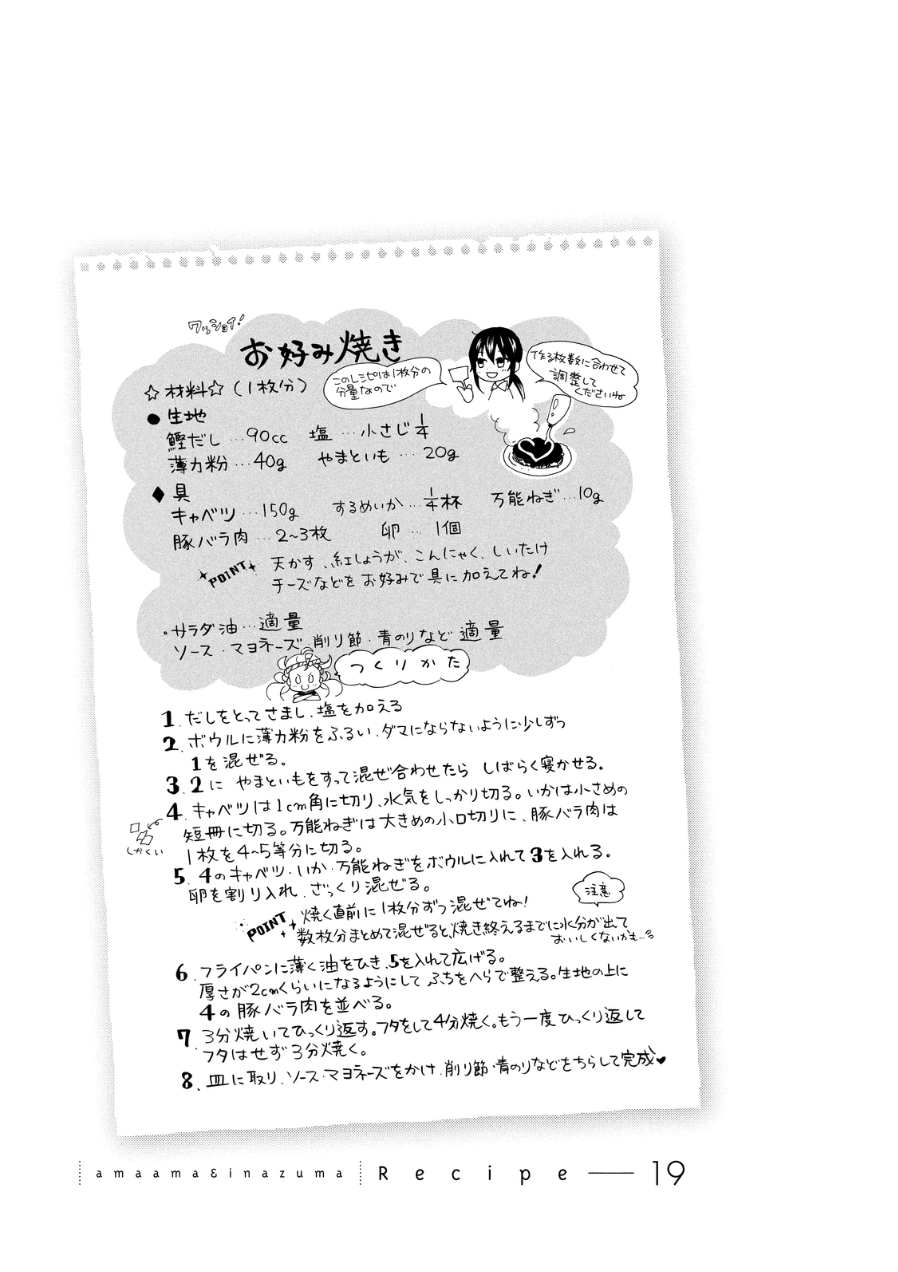 ワッショイ!
お好み焼き
☆材料☆(1枚分)
このレシピは1枚分の
分量なので
作る枚数に合わせて
調整して
くださいね
●生地
鰹だし…90cc 塩…小さじ1/4
薄力粉…40g やまといも…20g
◆具
キャベツ…150g するめいか…1/4杯 万能ねぎ…10g
豚バラ肉…2~3枚 卵…1個
POINT 天かす、紅しょうが、こんにゃく、しいたけ
チーズなどをお好みで具に加えてね!
・サラダ油…適量
ソース・マヨネーズ・削り節・青のりなど適量
つくりかた
1.だしをとってさまし、塩を加える
2.ボウルに薄力粉をふるい、ダマにならないように少しずつ
1を混ぜる。
3.2に やまといもをすって混ぜ合わせたら しばらく寝かせる。
4.キャベツは1cm角に切り、水気をしっかり切る。いかは小さめの
短冊に切る。万能ねぎは大きめの小口切りに、豚バラ肉は
1枚を4~5等分に切る。
しかくい
5.4のキャベツ・いか・万能ねぎをボウルに入れて3を入れる。
卵を割り入れ、ざっくり混ぜる。
注意
POINT 焼く直前に1枚分ずつ混ぜてね!
数枚分まとめて混ぜると、焼き終えるまでに水分が出て
おいしくないかも…
6.フライパンに薄く油をひき、5を入れて広げる。
厚さが2cmくらいになるようにして ふちをへらで整える。生地の上に
4の豚バラ肉を並べる。
7.3分焼いてひっくり返す。フタをして4分焼く。もう一度ひっくり返して
フタはせず3分焼く。
8.皿に取り、ソース・マヨネーズをかけ、削り節・青のりなどをちらして完成♥
amaama&inazuma Recipe — 19